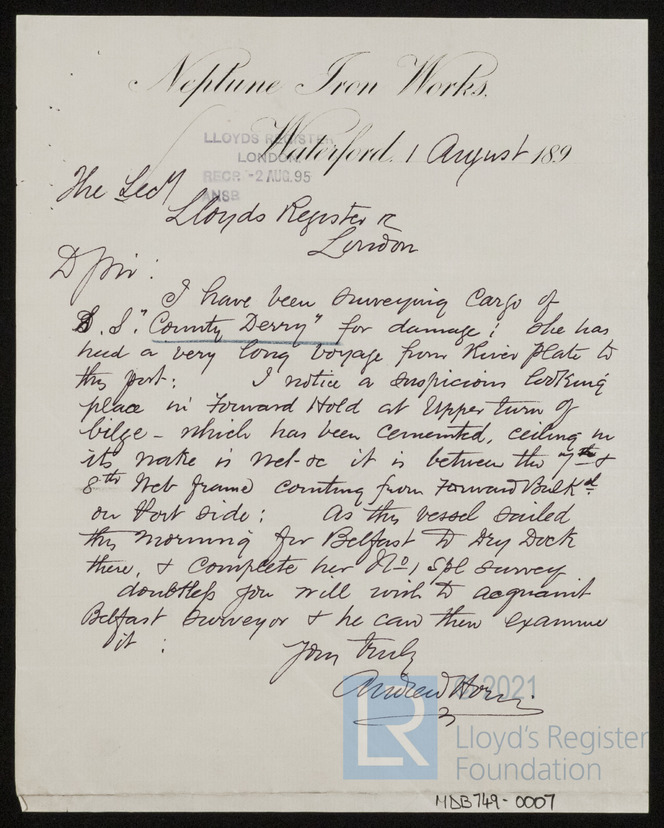 Neptune Iron Works,
Waterford, 1 August 189
LLOYDS REGISTER
LONDON.
RECR -2 AUG.95
ANSR
The Secy
Lloyds Register &c
London
D Sir :
I have been surveying cargo of
S. S. "County Derry" for damage ; she has
had a very long voyage from River Plate to
this port : I notice a suspicious looking
place in Forward Hold at Upper turn of
bilge - which has been cemented, ceiling in
its wake is wet - &c it is between the 7th &
8th Web frame counting from Forward Bulkd
on Port side : As this vessel sailed
this morning for Belfast to Dry Dock
there, & complete her No 1 Spl survey
doubtless you will wish to acquaint
Belfast Surveyor & he can then examine
it :
Yours truly
Andrew Horn
2021
LR
Lloyd's Register
Foundation
MDB749-0007